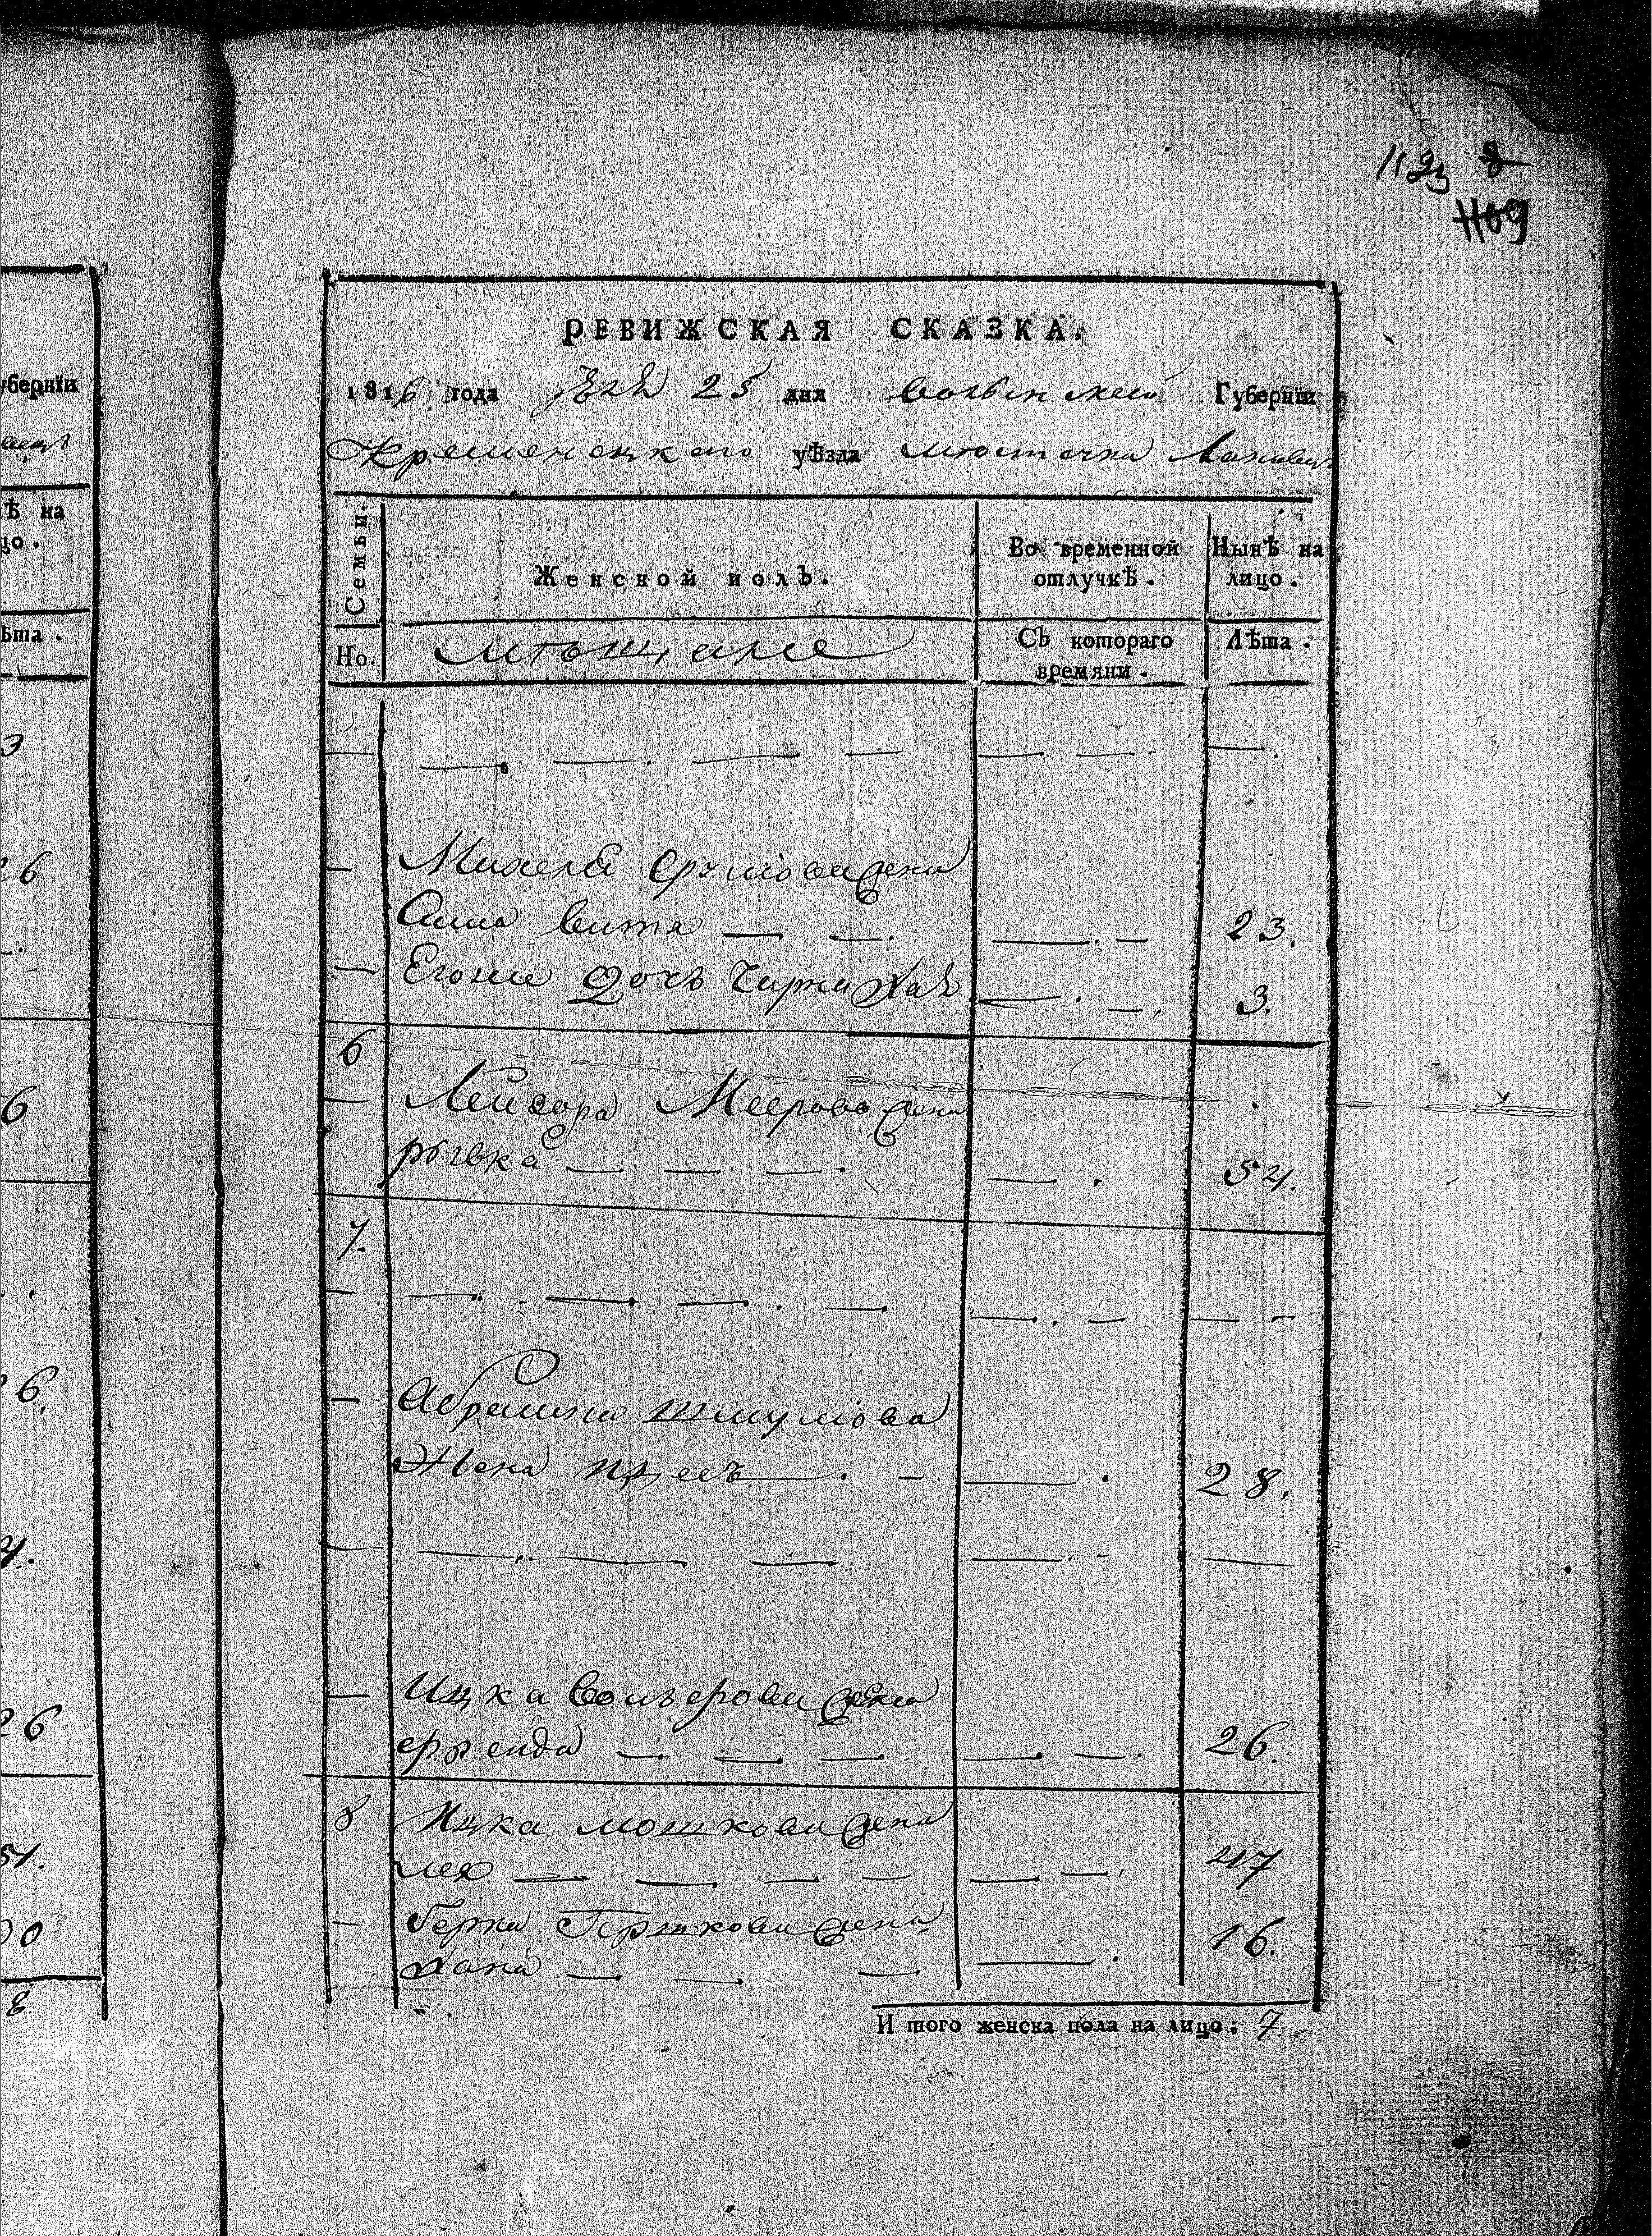 1123 8
1109
РЕВИЖСКАЯ СКАЗКА.
1816 года 25 дня волынской Губерніи
Кременецкаго уѣзда местечка Лановецъ
Семьи.
Женской полъ.
Во временной отлучкѣ.
Нынѣ на лицо.
Но.
мѣщане
Съ котораго времяни.
Лѣта.
Михеля Сруліова жена
витя 23.
Егоже дочь Хая 3.
6
Лейзора Меерова жена
рывка 54.
7.
Абрамка Шмуліова
Жена 28.
Ицка жена
фрейда 26.
8 Ицка мошкова жена
лея 47
Берка Гершкова жена
хана 16.
И того женска пола на лицо: 7
уберніи
Ѣ на
цо.
ѣта.
3
26
6
26
51.
8